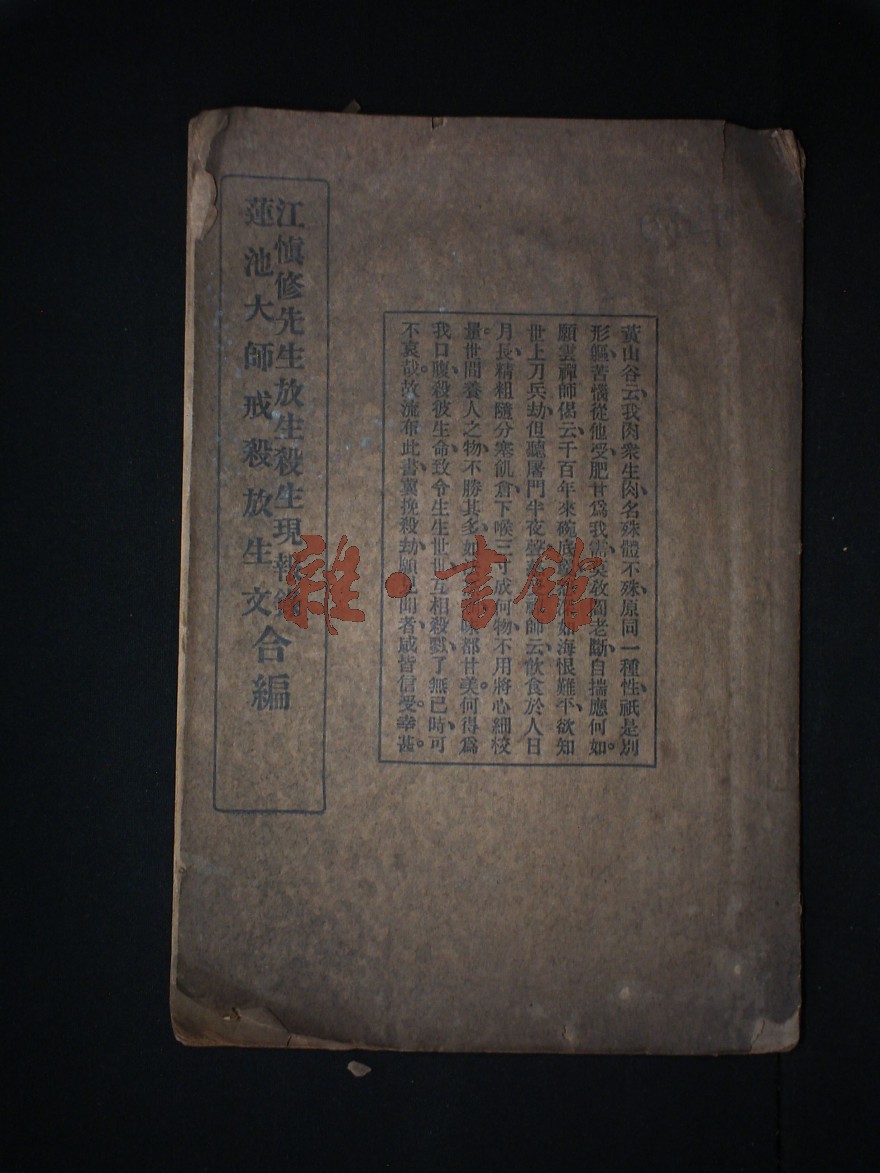 黃山谷云、我肉衆生肉、名殊體不殊、原同一種性、祇是別
形軀、苦惱從他受、肥甘爲我需、莫敎閻老斷、自揣應何如。
願雲禪師偈云、千百年來碗底如海恨難平、欲知
世上刀兵劫、但聽屠門半夜聲禪師云、飲食於人日
月長、精粗隨分塞飢倉、下喉三寸成何物、不用將心細校
量。世間養人之物、不勝其多、如味都甘美。何得爲
我口腹、殺彼生命、致令生生世世、互相殺戮、了無已時、可
不哀哉。故流布此書、冀挽殺劫、願聞者、咸皆信受、幸甚。
江慎修先生放生殺生現報錄
蓮池大師戒殺放生文
合編
雜·書館